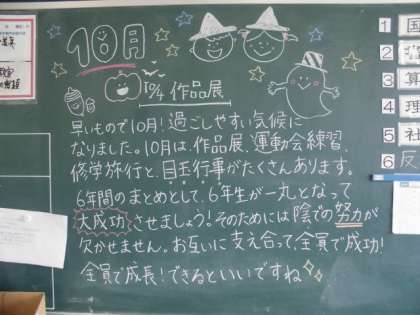 10月
10/4 作品展
早いもので10月!過ごしやすい気候に
なりました。10月は、作品展、運動会練習、
修学旅行と、目玉行事がたくさんあります。
6年間のまとめとして、6年生が一丸となって
大成功させましょう!そのためには陰での努力が
欠かせません。お互いに支え合って、全員で成功!
全員で成長!できるといいですね
1 国
2
3 算
4 理
5 社
6